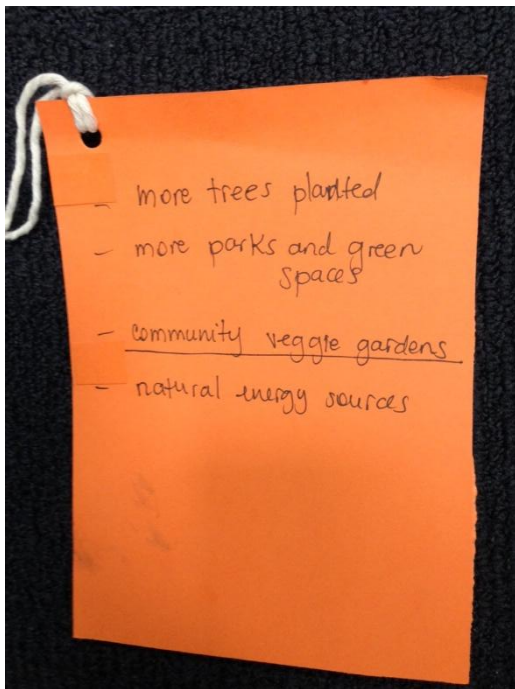 - more trees planted
- more parks and green
spaces
- community veggie gardens
- natural energy sources